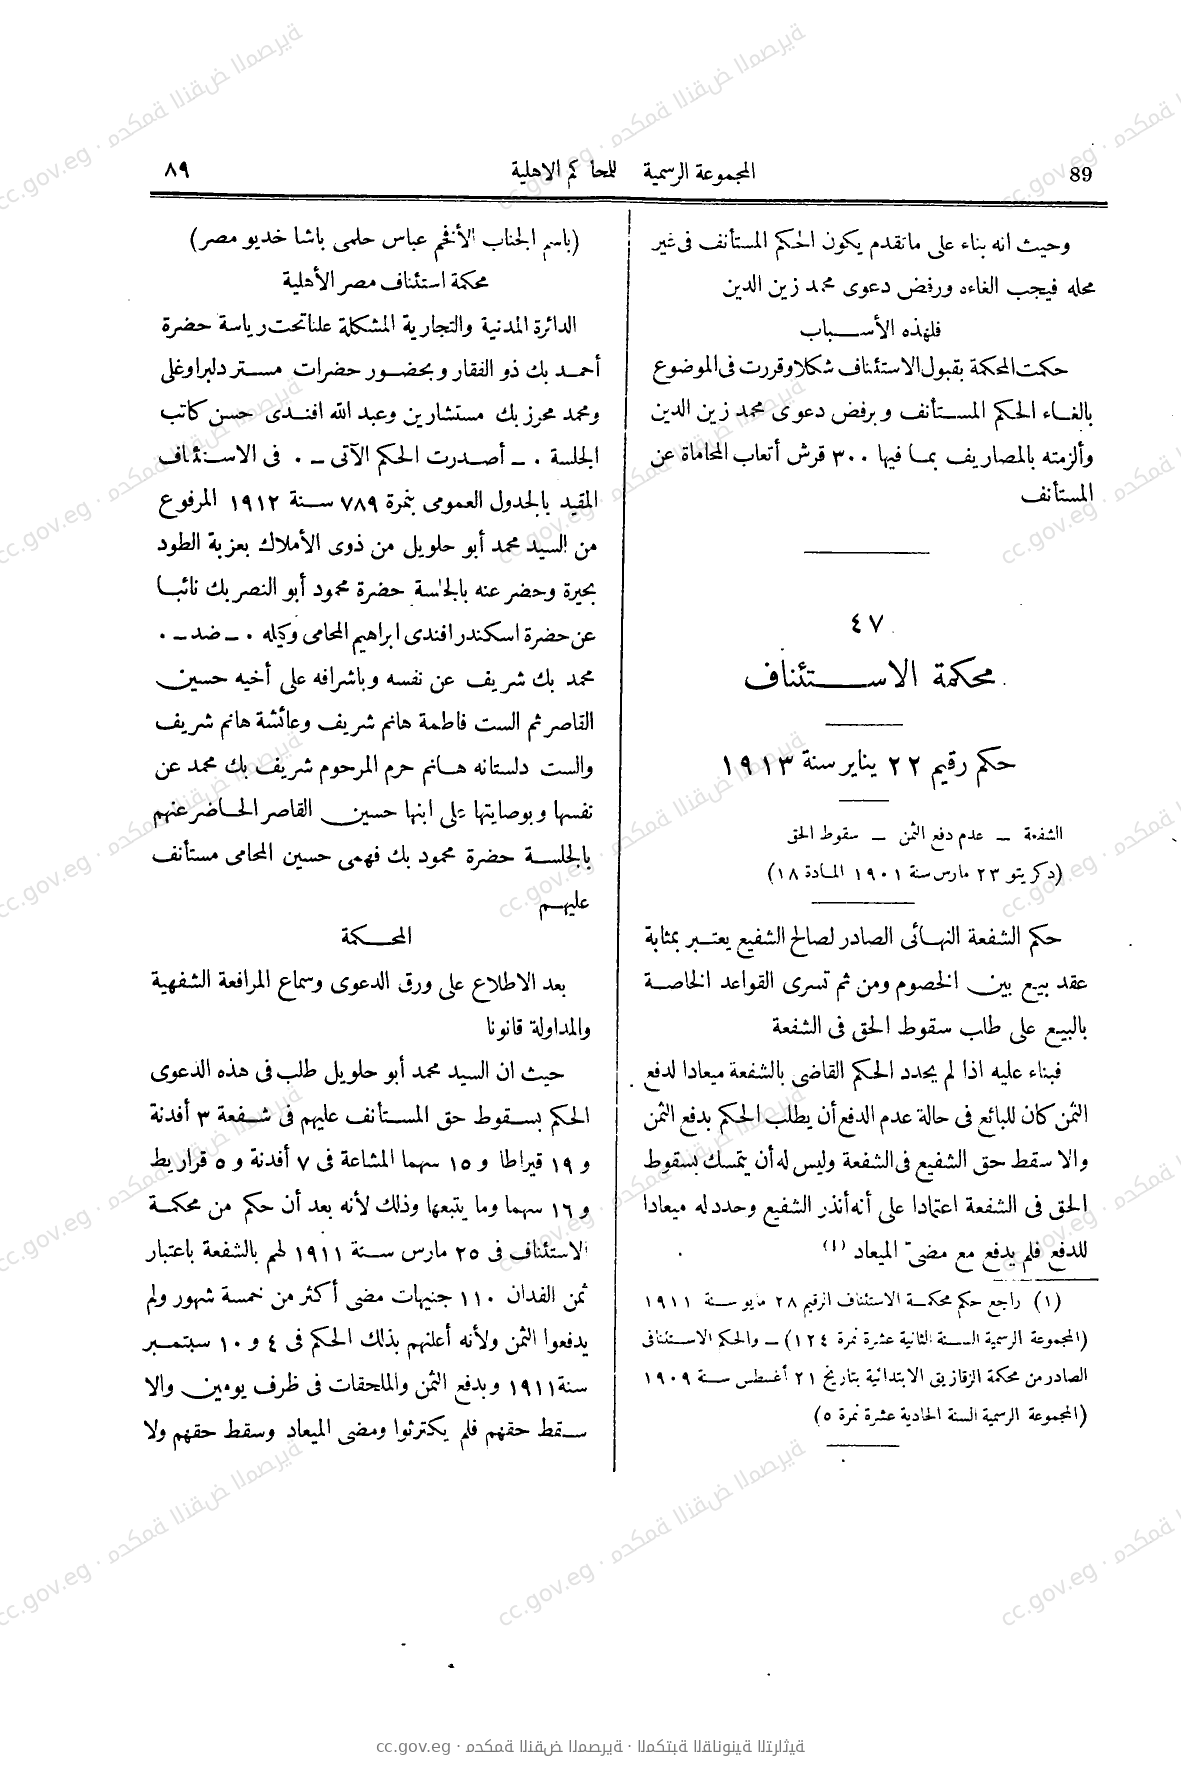 89
المجموعة الرسمية للمحاكم الاهلية
٨٩
وحيث انه بناء على ماتقدم يكون الحكم المستأنف فى غير
محله فيجب الغاءه ورفض دعوى محمد زين الدين
فلهذه الأسباب
حكمت المحكمة بقبول الاستئناف شكلا وقررت فى الموضوع
بالغاء الحكم المستأنف وبرفض دعوى محمد زين الدين
وألزمته بالمصاريف بما فيها ٣٠٠ قرش أتعاب المحاماة عن
المستأنف
٤٧
محكمة الاستئناف
حكم رقيم ٢٢ يناير سنة ١٩١٣
الشفعة — عدم دفع الثمن — سقوط الحق
(دكريتو ٢٣ مارس سنة ١٩٠١ المادة ١٨)
حكم الشفعة النهائى الصادر لصالح الشفيع يعتبر بمثابة
عقد بيع بين الخصوم ومن ثم تسرى القواعد الخاصة
بالبيع على طلب سقوط الحق فى الشفعة
فبناء عليه اذا لم يحدد الحكم القاضى بالشفعة ميعادا لدفع
الثمن كان للبائع فى حالة عدم الدفع أن يطلب الحكم بدفع الثمن
والا سقط حق الشفيع فى الشفعة وليس له أن يتمسك بسقوط
الحق فى الشفعة اعتمادا على أنه أنذر الشفيع وحدد له ميعادا
للدفع فلم يدفع مع مضىّ الميعاد (١)
(١) راجع حكم محكمة الاستئناف الرقيم ٢٨ مايو سنة ١٩١١
(المجموعة الرسمية السنة الثانية عشرة نمرة ١٢٤) — والحكم الاستئنافى
الصادر من محكمة الزقازيق الابتدائية بتاريخ ٢١ أغسطس سنة ١٩٠٩
(المجموعة الرسمية السنة الحادية عشرة نمرة ٥)
(باسم الجناب الأفخم عباس حلمى باشا خديو مصر)
محكمة استئناف مصر الأهلية
الدائرة المدنية والتجارية المشكلة علنا تحت رياسة حضرة
أحمد بك ذو الفقار وبحضور حضرات مستر دلبراوغلى
ومحمد محرز بك مستشارين وعبد الله افندى حسن كاتب
الجلسة . — أصدرت الحكم الآتى — . فى الاستئناف
المقيد بالجدول العمومى بنمرة ٧٨٩ سنة ١٩١٢ المرفوع
من السيد محمد أبو حلويل من ذوى الأملاك بعزبة الطود
بحيرة وحضر عنه بالجلسة حضرة محمود أبو النصر بك نائبا
عن حضرة اسكندر افندى ابراهيم المحامى وكيله . — ضد — .
محمد بك شريف عن نفسه وباشرافه على أخيه حسين
القاصر ثم الست فاطمة هانم شريف وعائشة هانم شريف
والست دلستانه هانم حرم المرحوم شريف بك محمد عن
نفسها وبوصايتها على ابنها حسين القاصر الحاضر عنهم
بالجلسة حضرة محمود بك فهمى حسين المحامى مستأنف
عليهم
المحكمة
بعد الاطلاع على ورق الدعوى وسماع المرافعة الشفهية
والمداولة قانونا
حيث ان السيد محمد أبو حلويل طلب فى هذه الدعوى
الحكم بسقوط حق المستأنف عليهم فى شفعة ٣ أفدنة
و ١٩ قيراطا و ١٥ سهما المشاعة فى ٧ أفدنة و ٥ قراريط
و ١٦ سهما وما يتبعها وذلك لأنه بعد أن حكم من محكمة
الاستئناف فى ٢٥ مارس سنة ١٩١١ لهم بالشفعة باعتبار
ثمن الفدان ١١٠ جنيهات مضى أكثر من خمسة شهور ولم
يدفعوا الثمن ولأنه أعلنهم بذلك الحكم فى ٤ و ١٠ سبتمبر
سنة ١٩١١ وبدفع الثمن والملحقات فى ظرف يومين والا
سقط حقهم فلم يكترثوا ومضى الميعاد وسقط حقهم ولا
cc.gov.eg · محكمة النقض المصرية · المكتبة القانونية التراثية